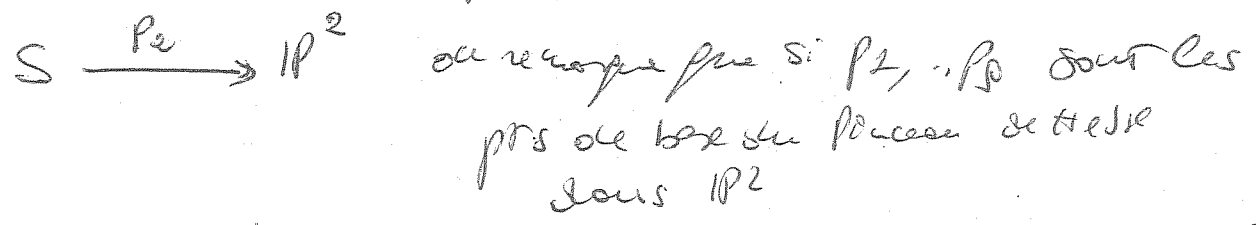 S $\xrightarrow{P_2}$ ℙ² on remarque que si P1, .. P9 sont les
pts de base du Pinceau de Hesse
dans ℙ²